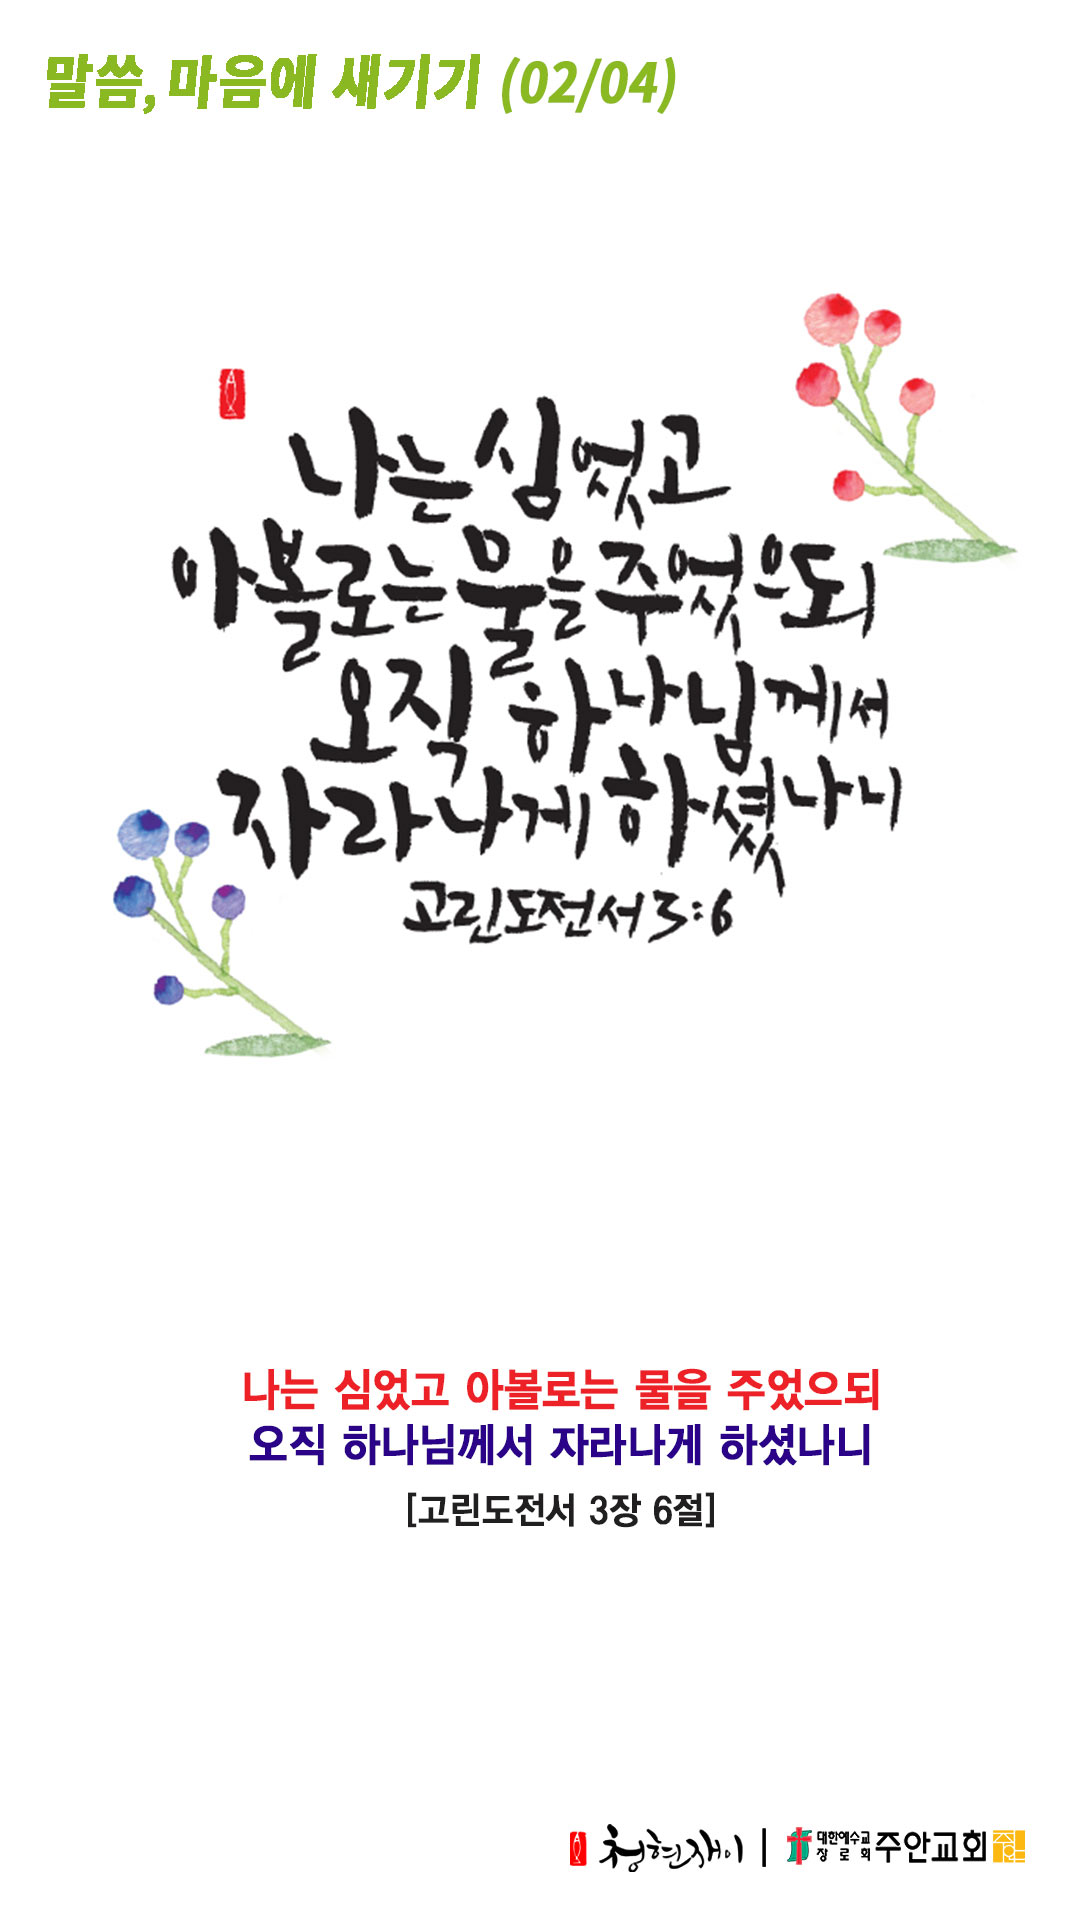 말씀, 마음에 새기기 (02/04)
나는 심었고
아볼로는 물을 주었으되
오직 하나님께서
자라나게 하셨나니
고린도전서 3:6
나는 심었고 아볼로는 물을 주었으되
오직 하나님께서 자라나게 하셨나니
[고린도전서 3장 6절]
청현재이 | 대한예수교장로회 주안교회